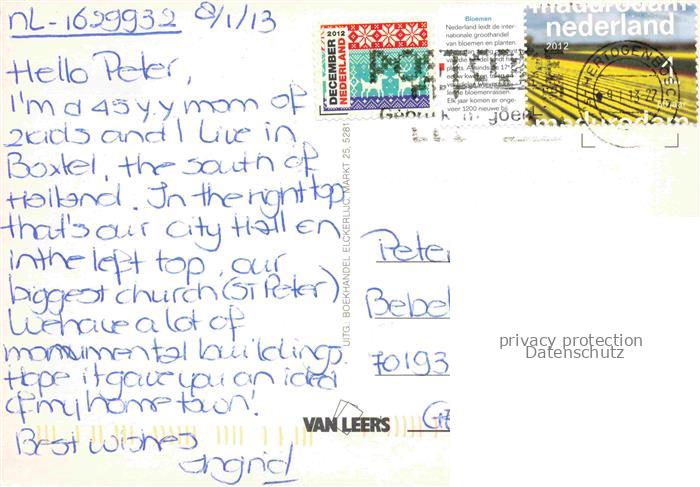 NL-1629932 8/1/13
Hello Peter,
I'm a 45 y.y mom of
2 kids and I live in
Boxtel, the south of
Holland. In the right top
that's our city Hall en
in the left top, our
biggest church (St Peter)
We have a lot of
monumental buildings.
Hope it gave you an idea
of my home town!
Best wishes
Ingrid
UITG. BOEKHANDEL ELCKERLUC, MARKT 25, 5281
DECEMBER 2012
NEDERLAND
Bloemen
Nederland leidt de inter-
nationale groothandel
van bloemen en planten.
Elk jaar komen er onge-
veer 1200 nieuwe bij.
madurodam
nederland
2012
1
madurodam
Peter
Bebel
70193
VAN LEERS
privacy protection
Datenschutz